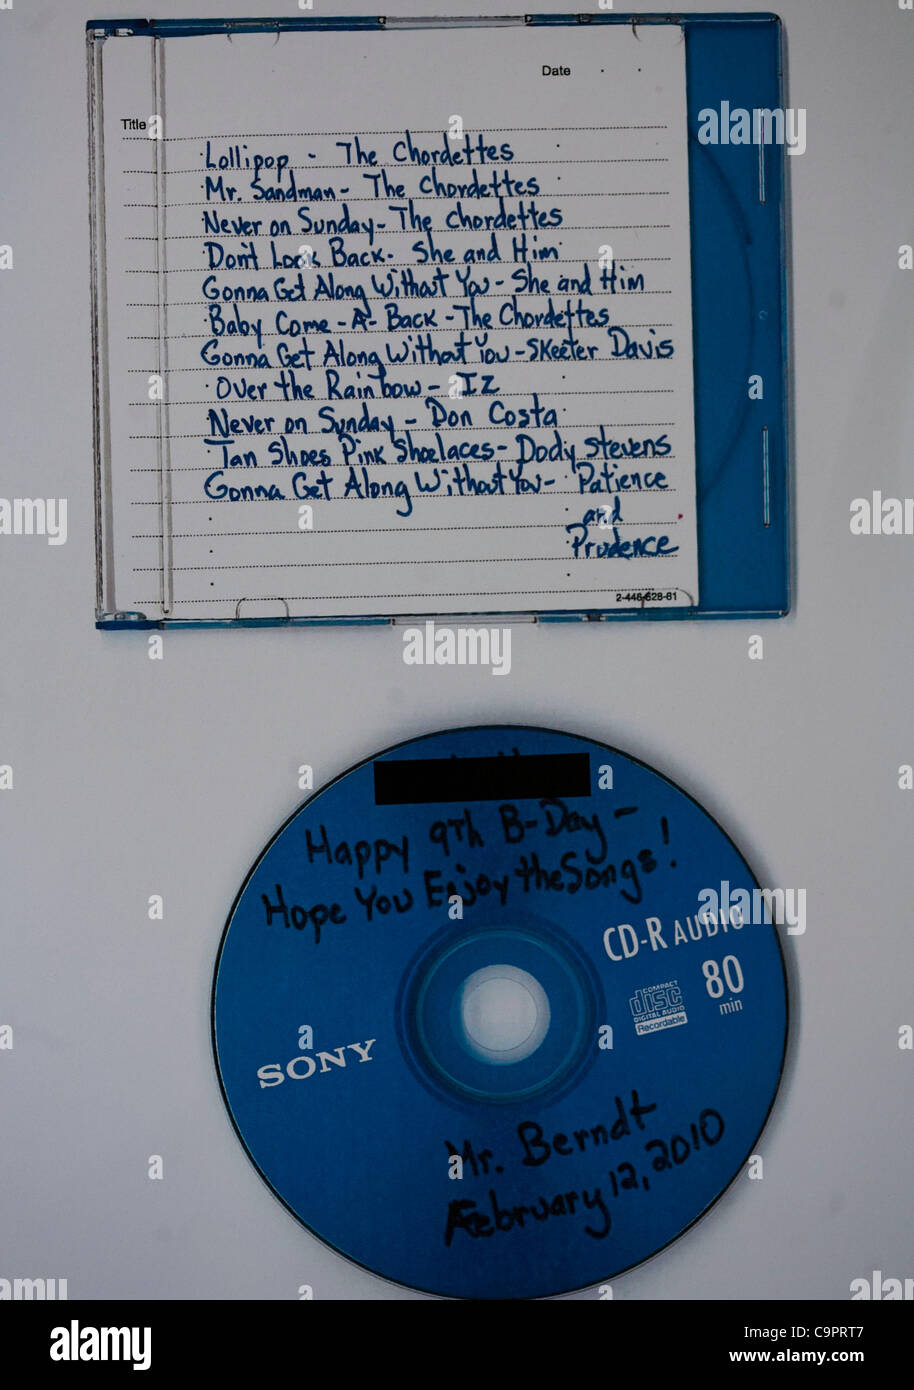 Date
Title
Lollipop - The Chordettes
Mr. Sandman - The Chordettes
Never on Sunday - The Chordettes
Don't Look Back - She and Him
Gonna Get Along Without You - She and Him
Baby Come-A-Back - The Chordettes
Gonna Get Along Without You - Skeeter Davis
Over the Rainbow - Iz
Never on Sunday - Don Costa
Tan Shoes Pink Shoelaces - Dody Stevens
Gonna Get Along Without You - Patience
and
Prudence
2-446-628-61
Happy 9th B-Day -
Hope You Enjoy the Songs!
CD-R AUDIO
COMPACT
disc
DIGITAL AUDIO
Recordable
80
min
SONY
Mr. Berndt
February 12, 2010
alamy
Image ID: C9PRT7
www.alamy.com